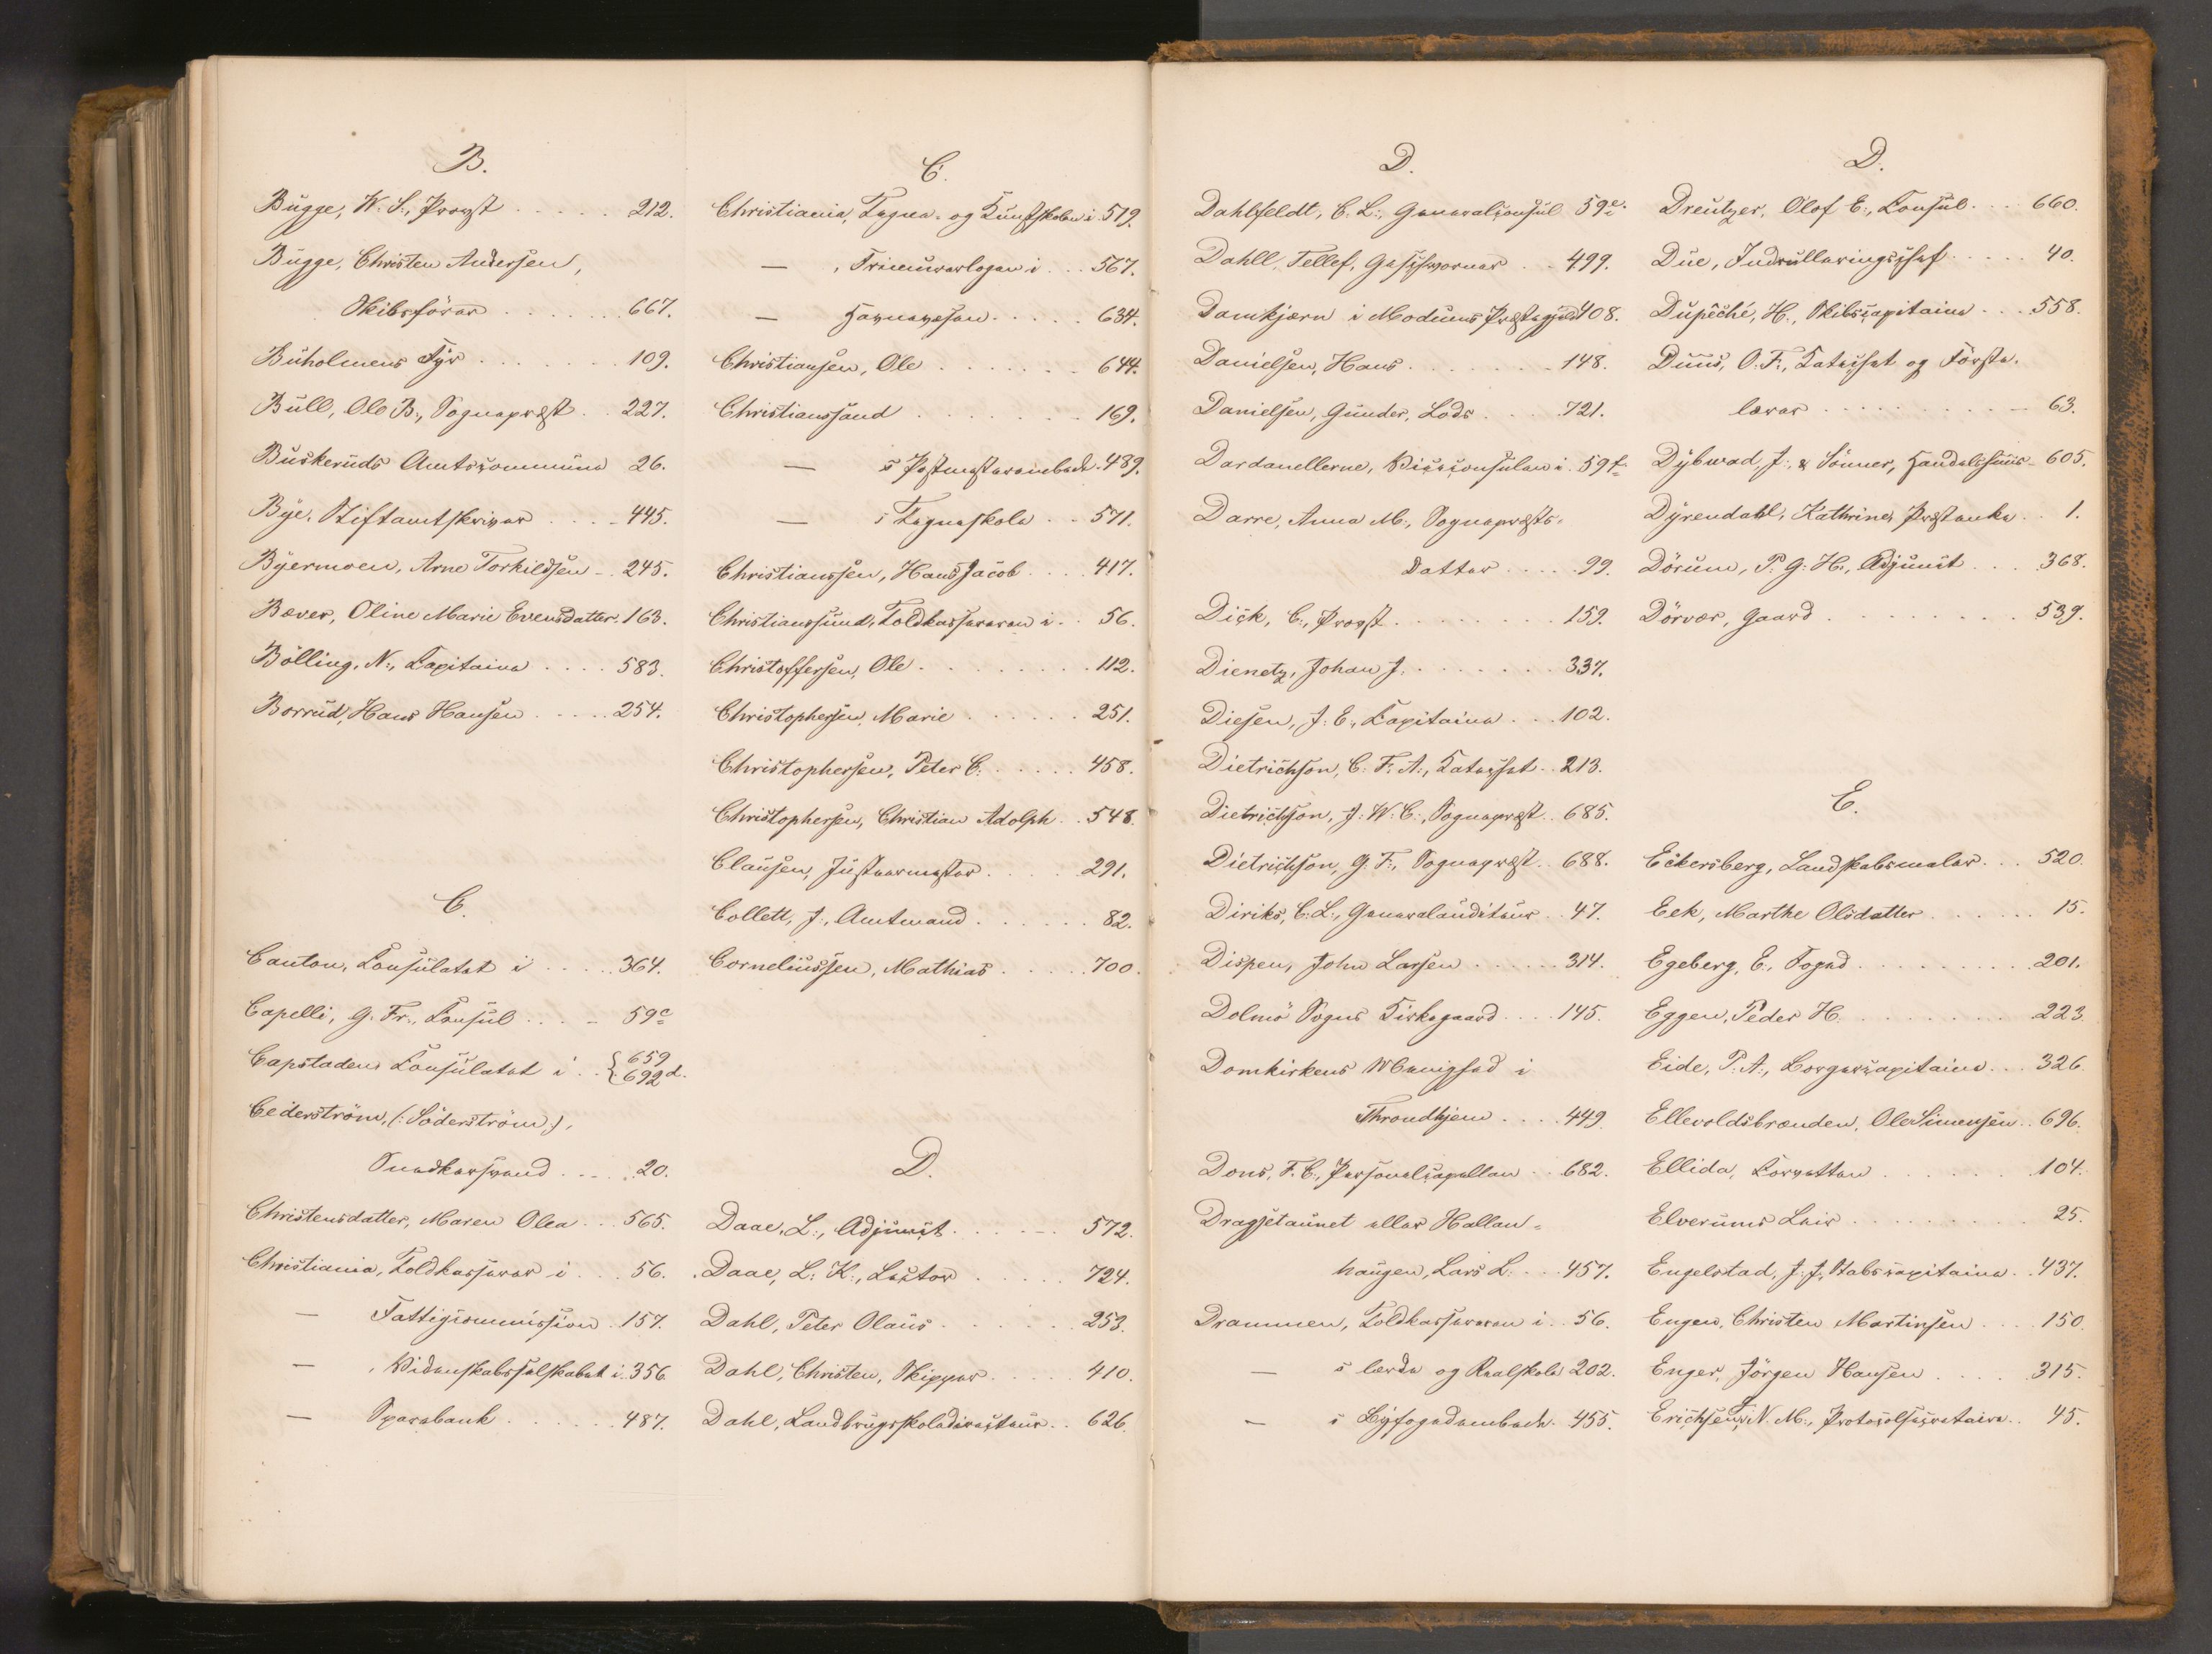 B.
Bugge, W. S., Provst . . . . . 212.
Bugge, Christen Andersen,
Skibsförer . . . . . . . 667.
Buholmens Fyr . . . . . . . 109.
Bull, Ole B., Sognepræst . . 227.
Buskeruds Amtscommune 26.
Bye, Stiftamtskriver . . . . 445.
Byermoen, Arne Torkildsen . . 245.
Bæver, Oline Marie Evensdatter. 163.
Bölling, N., Capitaine . . . . 583.
Børrud, Hans Hansen . . . . . 254.
C.
Canton, Consulatet i . . . . 364.
Capelli, G. Fr., Consul . . . . 59c
Capstaden Consulatet i . . { 659
692 d.
Cederström, (: Söderström :),
Snedkersvend . . . . . 20.
Christensdatter, Maren Olea . . . 565.
Christiania, Toldkasserer i . . . 56.
— Fattigcommission . 157.
— , Videnskabsselskabet i . 356
— Sparebank . . . . . . 487.
C.
Christiania, Tegne- og Kunstskolen i. 519.
— , Frimurerlogen i . . . 567.
— Havnevæsen . . . . . 634.
Christiansen, Ole . . . . . . . 644.
Christianssand . . . . . . . . 169.
— s Postmesterembede . 489.
— s Tegneskole . . . 571.
Christianssen, Hans Jacob . . . . 417.
Christianssund, Toldkassereren i . . 56.
Christoffersen, Ole . . . . . . . . 112.
Christophersen, Marie . . . . . . 251.
Christophersen, Peter C. . . . . . 458.
Christophersen, Christian Adolph . . 548.
Clausen, Justermester . . . . . 291.
Collett, J., Amtmand . . . . . . 82.
Corneliussen, Mathias . . . . . 700.
D.
Daae, L., Adjunct . . . . . . 572.
Daae, L. K., Lector . . . . . 724.
Dahl, Peter Olaus . . . . . . . 253.
Dahl, Christen, Skipper . . . . . 410.
Dahl, Landbrugsskoledirecteur . . 626.
D.
Dahlfeldt, C. L., Generalconsul 59e.
Dahll, Tellef, Geschworner . . 499.
Damkjærn i Modums Præstegjeld 408.
Danielsen, Hans . . . . . . . 148.
Danielsen, Gunder, Lods . . . . 721.
Dardanellerne, Viceconsulen i . 59f.
Darre, Anna M., Sognepræsts-
Datter . . . . . 99.
Dick, C., Provst . . . . . . . . 159.
Dienetz, Johan J. . . . . . . . 337.
Diesen, J. E., Capitaine . . . 102.
Dietrichson, C. F. A., Catechet . . 213.
Dietrichson, J. W. C., Sognepræst . . 685.
Dietrichson, G. F., Sognepræst . . 688.
Diriks, C. L., Generalauditeur . . 47.
Dispen, John Larsen . . . . . . 314.
Dolmö Sogns Kirkegaard . . . . 145.
Domkirkens Menighed i
Throndhjem . . . . 449.
Dons, F. C., Personelcapellan . . 682.
Dragsetaunet eller Hallan-
haugen, Lars L. . . . 457.
Drammen, Toldkassereren i . . 56.
— s lærde og Realskole 202.
— s Byfogedembede . 455.
D.
Dreutzer, Olof E., Consul . . . 660.
Due, Indrulleringschef . . . . . 40.
Dupéché, H., Skibscapitaine . . . 558.
Duus, O. F., Catechet og Förste-
lærer . . . . . . . . . . 63.
Dybwad, J. & Sönner, Handelshuus 605.
Dyrendahl, Kathrine, Præsteenke . . 1.
Dörum, P. G. H., Adjunct . . . 368.
Dörvær, Gaard . . . . . . . . . 539.
E.
Eckersberg, Landskabsmaler . . . 520.
Eek, Marthe Olsdatter . . . . . . 15.
Egeberg, E., Foged . . . . . . . . 201.
Eggen, Peder H. . . . . . . . . 223.
Eide, P. A., Borgercapitaine . . . 326.
Ellevoldsbrænden, Ole Simensen . . 696.
Ellida, Corvetten . . . . . . . 104.
Elverums Leir . . . . . . . . 25.
Engelstad, J. J., Stabscapitaine . . 437.
Engen, Christen Martinsen . . . . 150.
Enger, Jörgen Hansen . . . . 315.
Erichsen, N. M., Protocolsecretaire . . 45.